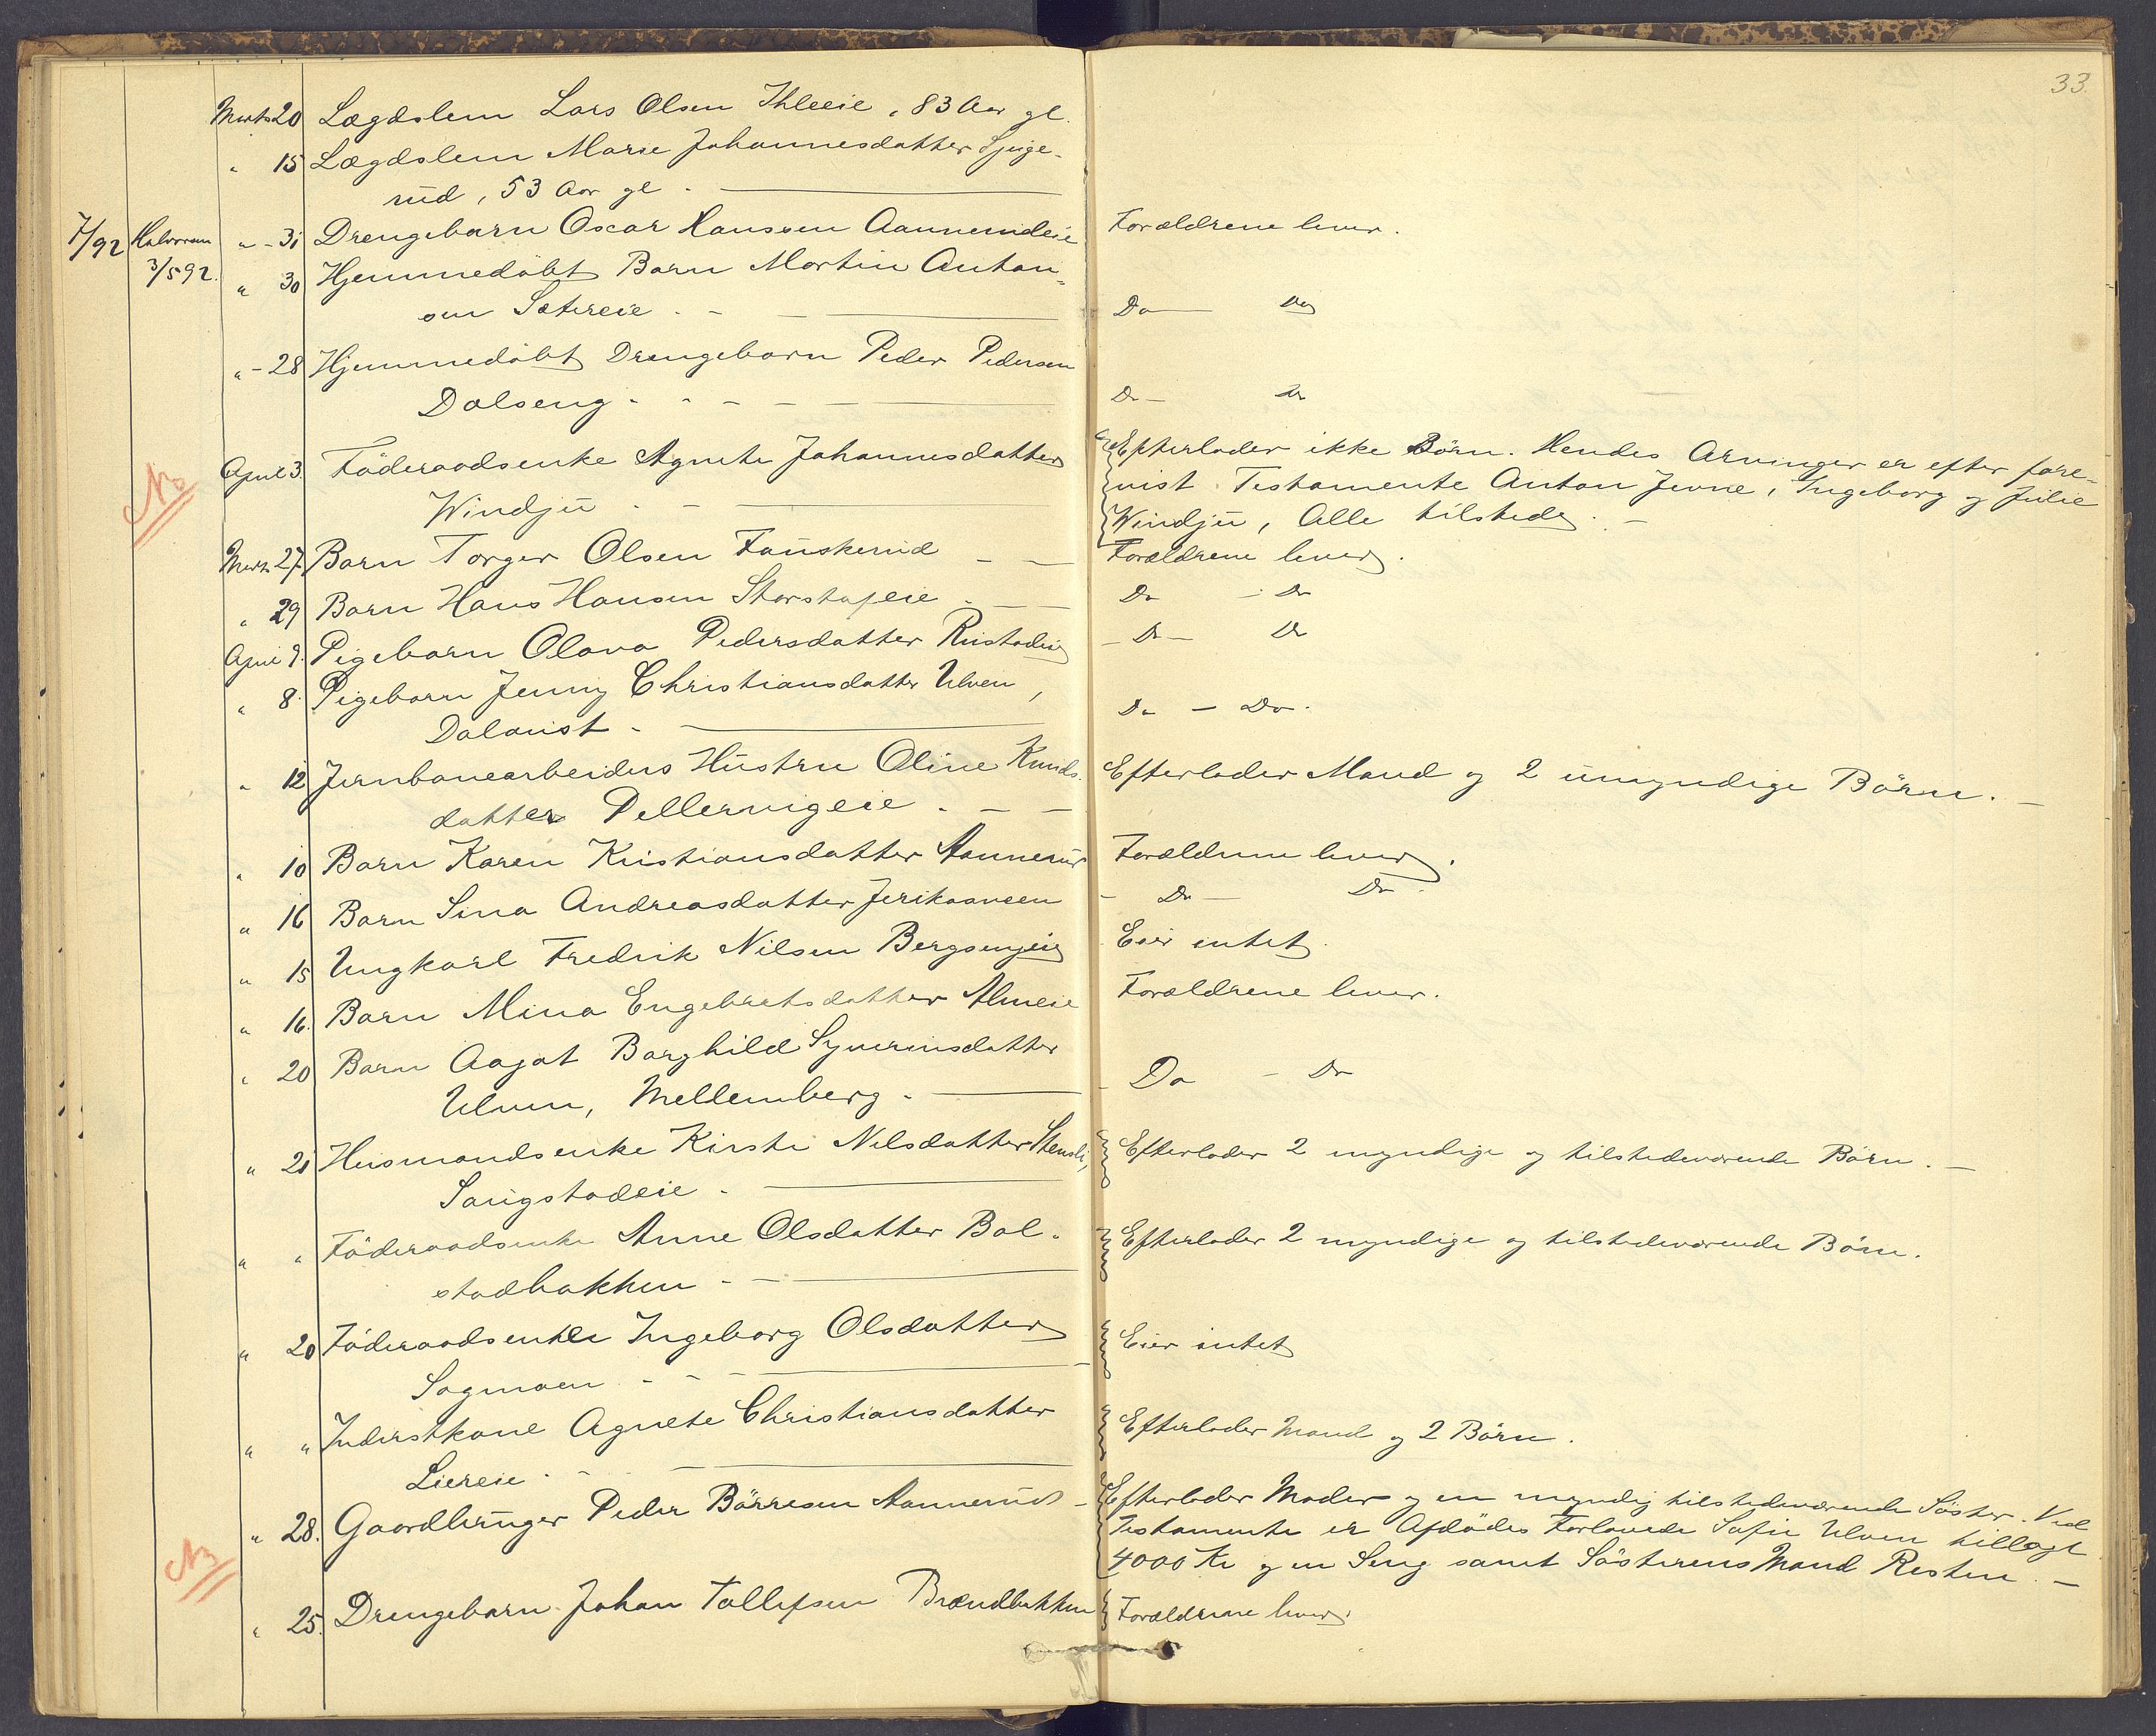 33.
Marts 20 Lægdslem Lars Olsen Ihleeie, 83 Aar gl.
" 15 Lægdslem Marie Johannesdatter
rud, 53 Aar gl. —
7/92 Halvorsen " - 31 Drengebarn Oscar Hanssen Aannerudeie Forældrene lever.
3/5 92. " 30 Hjemmedöbt Barn Martin Anton-
sen Sætreeie . - — Do — Do
" - 28 Hjemmedöbt Drengebarn Peder Pedersen
Dalseng . - - — Do — Do
April 3. Föderaadsenke Agnete Johannesdatter Efterlader ikke Börn. Hendes Arvinger er efter fore-
NB Windju . - — vist Testamente Anton Jevne, Ingeborg og Julie
Windju, Alle tilstede. —
Marts 27. Barn Torger Olsen Fauskerud — — Forældrene lever.
" 29 Barn Hans Hansen — — Do - Do
April 9. Pigebarn Olava Pedersdatter Rustadeie - Do - Do
" 8. Pigebarn Jenny Christiansdatter Ulven,
Dalquist . — Do — Do.
" 12 Jernbanearbeiders Hustru Oline Knuds- Efterlader Mand og 2 umyndige Börn. —
datter Pellervigeie . — —
" 10 Barn Karen Kristiansdatter Aannerud Forældrene lever.
" 16 Barn Sina Andreasdatter - Do — Do.
" 15 Ungkarl Fredrik Nilsen Bergsengeie Eier intet.
" 16. Barn Mina Engebretsdatter Almeie Forældrene lever.
" 20 Barn Aagot Borghild Syverinsdatter
Ulven, Mellemberg . — - Do - Do
" 21 Husmandsenke Kirsti Nilsdatter Efterlader 2 myndige og tilstedeværende Börn. —
Saugstadeie . —
" " Föderaadsenke Anne Olsdatter Bol- Efterlader 2 myndige og tilstedeværende Börn.
stadbakken . - —
" 20 Föderaadsenke Ingeborg Olsdatter Eier intet
Sagmoen . - - —
" " Inderstkone Agnete Christiansdatter Efterlader Mand og 2 Börn.
Liereie . - —
" 28. Gaardbruger Peder Börresen Aannerud - Efterlader Moder og en myndig tilstedeværende Söster. Ved
Testamente er Afdödes Forlovede Sofie Ulven tillagt
NB 4000 Kr og en Seng samt Sösterens Mand Resten. —
" 25. Drengebarn Johan Tollefsen Brændbakken Forældrene lever.